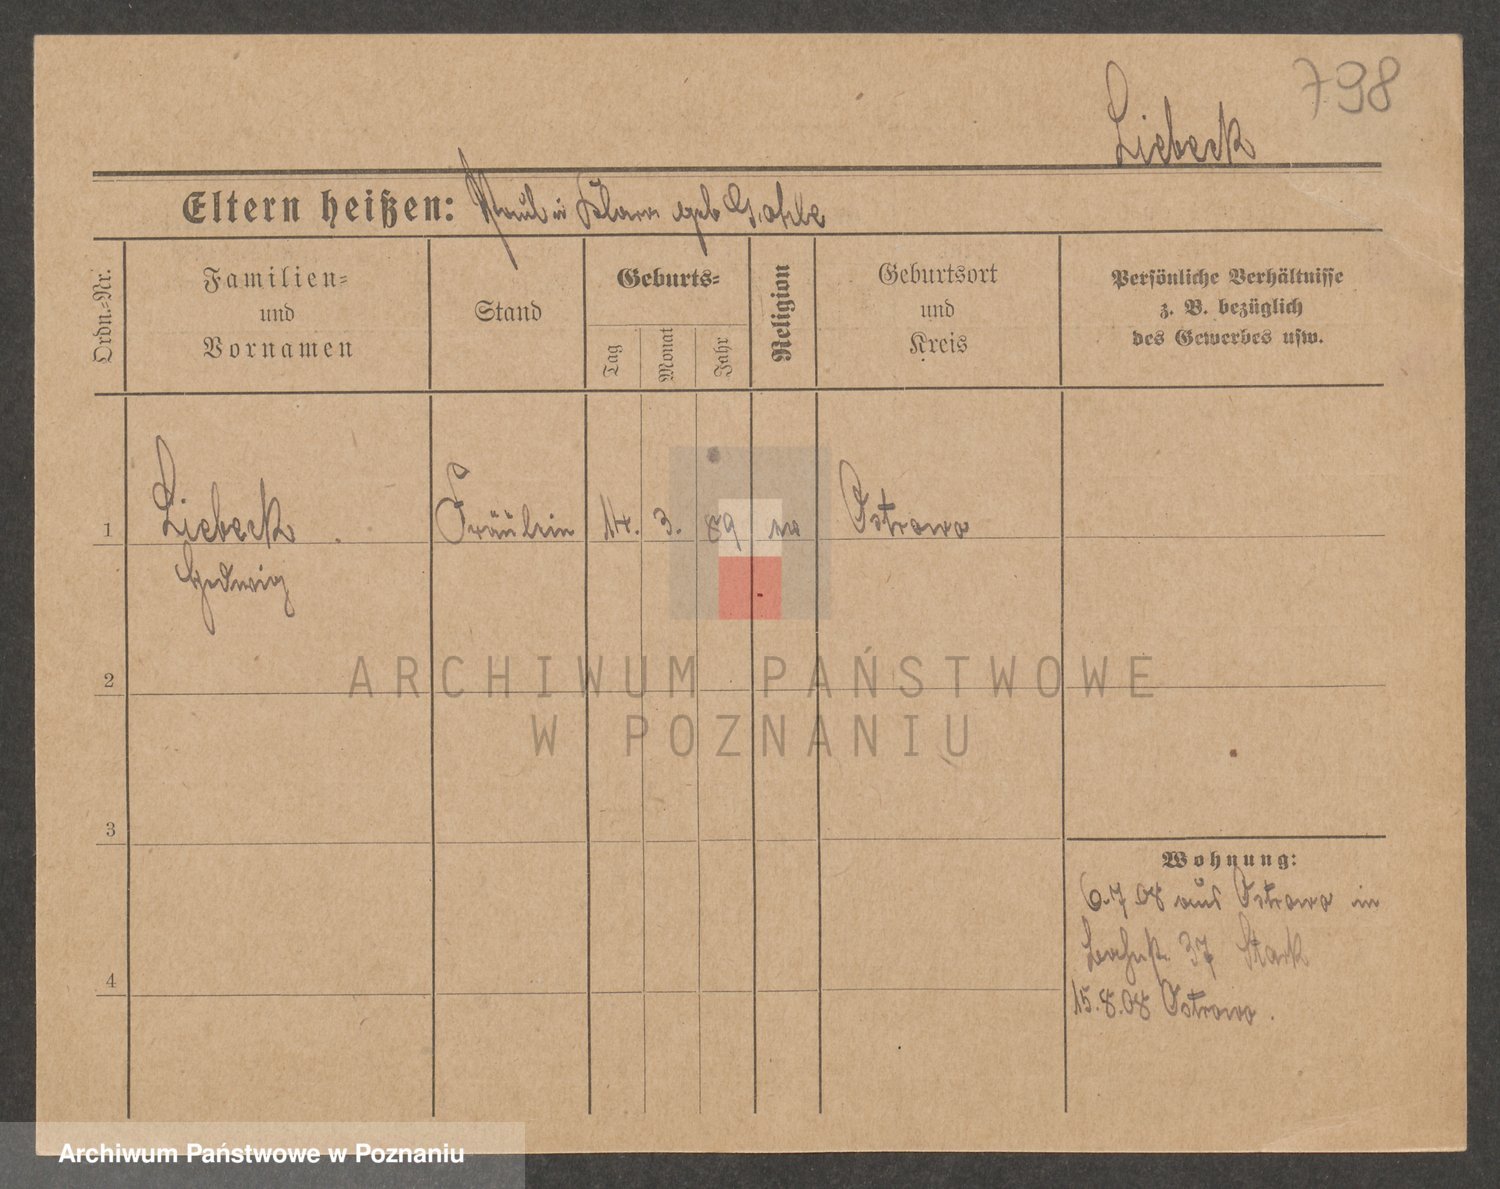 798
Liebeck
Eltern heißen: Paul u Klara geb
Ordn.-Nr.
Familien-
und
Vornamen
Stand
Geburts-
Tag
Monat
Jahr
Religion
Geburtsort
und
Kreis
Persönliche Verhältnisse
z. B. bezüglich
des Gewerbes usw.
1 Liebeck Fräulein 14. 3. 89 Ostrowo
Hedwig
2
ARCHIWUM PAŃSTWOWE
W POZNANIU
3
Wohnung:
6.7 08 aus Ostrowo in
37 Stark
4
15.8.08 Ostrowo.
Archiwum Państwowe w Poznaniu